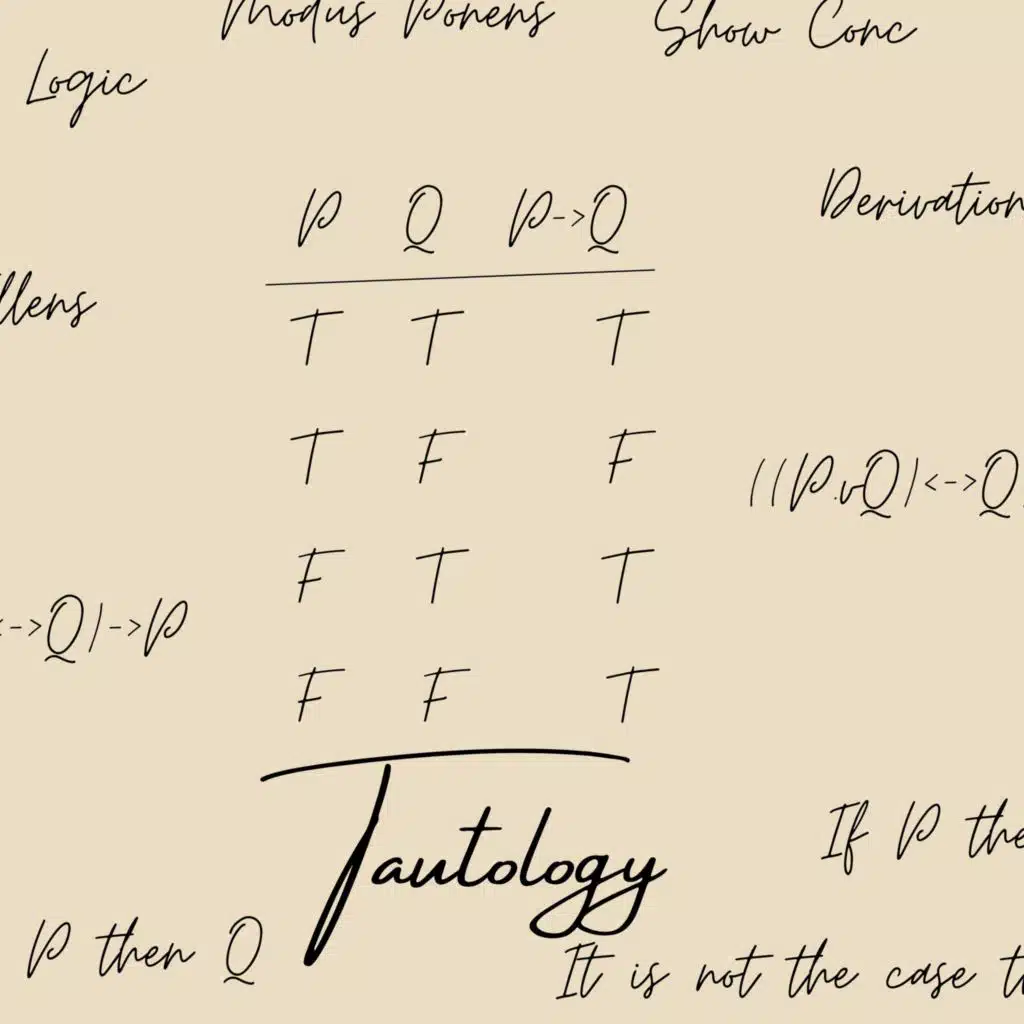 Modus Ponens
Show Conc
Logic
Derivation
llens
P Q P->Q
T T T
T F F
((P.vQ)<->Q
F T T
<->Q)->P
F F T
Tautology
If P the
P then Q
It is not the case t